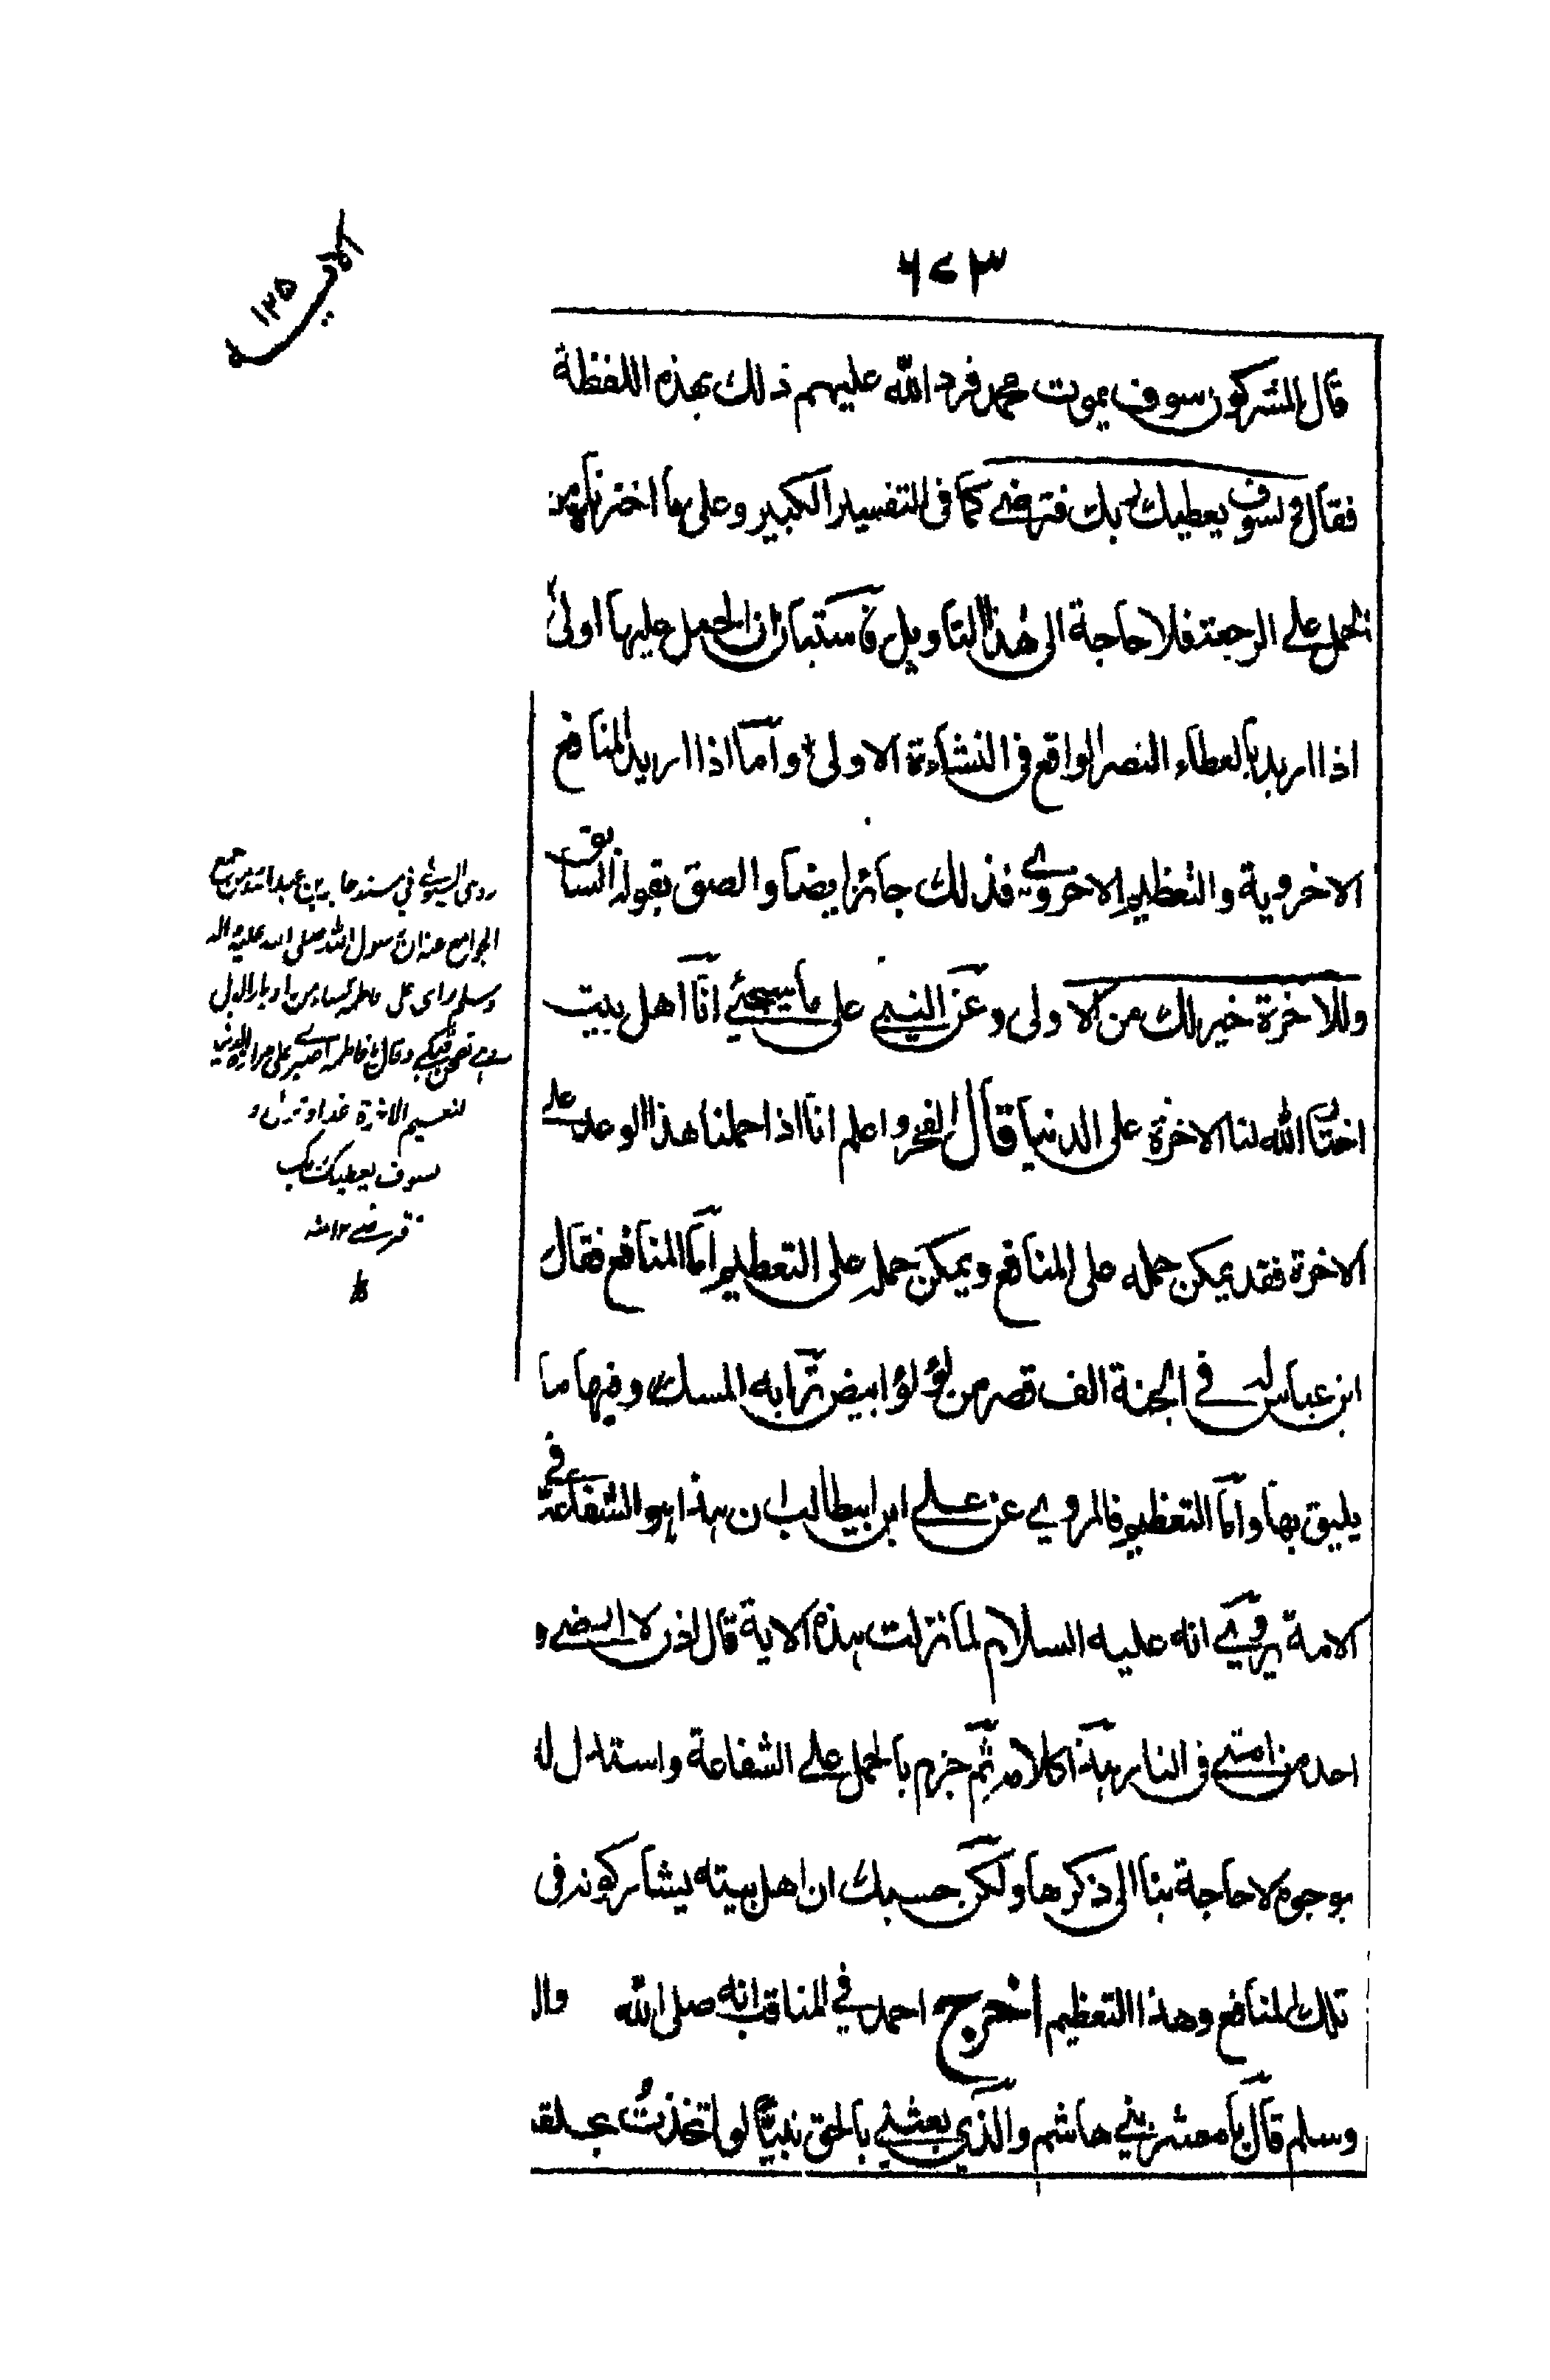 الآية ١٢٥
٦٧٣
قال المشركون سوف يموت محمد فرد الله عليهم ذلك بهذه اللفظة
فقال ولسوف يعطيك ربك فترضى كما فى التفسير الكبير وعلى ما اخترناه من
الحمل على الرجعة فلا حاجة الى هذا التاويل فاستبان ان الحمل عليها اولى
اذا اريد بالعطاء النصر الواقع فى النشاءة الاولى واما اذا اريد المنافع
الاخروية والتعظيم الاخروى فذلك جائز ايضا والصق بقوله السابق
وللاخرة خير لك من الاولى وعن النبى على ما سيجئ انا اهل بيت
اختار الله لنا الاخرة على الدنيا قال الفخر واعلم انا اذا حملنا هذا الوعد على
الاخرة فقد يمكن حمله على المنافع ويمكن حمله على التعظيم اما المنافع فقال
ابن عباس له فى الجنة الف قصر من لؤلؤ ابيض ترابه المسك وفيها ما
يليق بها واما التعظيم فالمروى عن على ابن ابيطالب ان هذا هو الشفاعة فى
الامة يروى انه عليه السلام لما نزلت هذه الاية قال اذن لا ارضى و
احد من امتى فى النار هذا كلامه ثم جزم بالحمل على الشفاعة واستدل له
بوجوه لا حاجة بنا الى ذكرها ولكن حسبك ان اهل بيته يشاركونه فى
تلك المنافع وهذا التعظيم اخرج احمد فى المناقب انه صلى الله واله
وسلم قال يا معشر بنى هاشم والذى بعثنى بالحق نبيا لو اخذت بحلقة
روى السيوطي في مسند جابر بن عبد الله من جمع
الجوامع عنه ان رسول الله صلى الله عليه واله
وسلم راى على فاطمة كساء من اوبار الابل
وهي تطحن فبكى وقال يا فاطمة اصبري على مرارة الدنيا
لنعيم الاخرة غدا ونزلت و
لسوف يعطيك ربك
فترضى ١٢ منه